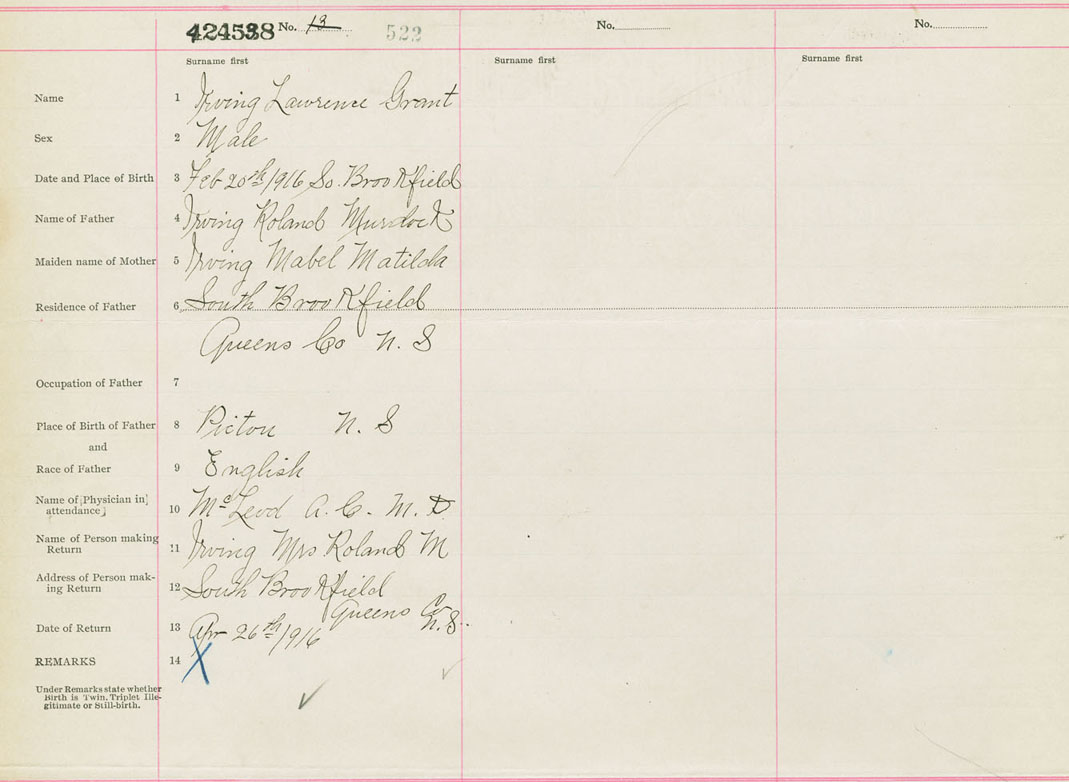 424538 No. 13 522 No. No.
Surname first Surname first Surname first
Name 1 Irving Lawrence Grant
Sex 2 Male
Date and Place of Birth 3 Feb 20th/916 So. Brookfield
Name of Father 4 Irving Roland Murdock
Maiden name of Mother 5 Irving Mabel Matilda
Residence of Father 6 South Brookfield
Queens Co N. S
Occupation of Father 7
Place of Birth of Father 8 Pictou N. S
and
Race of Father 9 English
Name of [Physician in]
attendance] 10 McLeod A. C. M. D
Name of Person making
Return 11 Irving Mrs Roland M
Address of Person mak-
ing Return 12 South Brookfield
Queens Co
N.S.
Date of Return 13 Apr 26th/916
REMARKS 14 X
Under Remarks state whether
Birth is Twin, Triplet Ille-
gitimate or Still-birth.